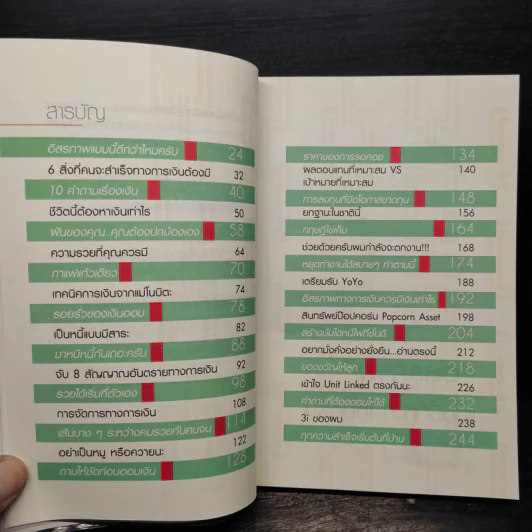 สารบัญ
อิสรภาพแบบนี้ดีกว่าไหมครับ 24
6 สิ่งที่คนจะสำเร็จทางการเงินต้องมี 32
10 คำถามเรื่องเงิน 40
ชีวิตนี้ต้องหาเงินเท่าไร 50
ฝันของคุณ..คุณต้องปกป้องเอง 58
ความรวยที่คุณควรมี 64
กาแฟแก้วเดียว 70
เทคนิคการเงินจากแม่โนบิตะ 74
รอยรั่วของเงินออม 78
เป็นหนี้แบบมีสาระ 82
มาหนีหนี้กันเถอะครับ 88
จับ 8 สัญญาณอันตรายทางการเงิน 92
รวยได้เริ่มที่ตัวเอง 98
การจัดการทางการเงิน 108
เส้นบาง ๆ ระหว่างคนรวยกับคนจน 114
อย่าเป็นหมู หรือควายนะ 122
ถามให้ชัดก่อนออมเงิน 128
ราคาของการรอคอย 134
ผลตอบแทนที่เหมาะสม VS 140
เป้าหมายที่เหมาะสม
การลงทุนที่ปิดโอกาสขาดทุน 148
ยกฐานะในชาตินี้ 156
กฤษฎีไข่เค็ม 164
ช่วยด้วยครับผมกำลังจะตกงาน!!! 168
หยุดทำงานได้สบายๆ ทำตามนี้ 174
เตรียมรับ YoYo 188
อิสรภาพทางการเงินควรมีเงินเท่าไร 192
สินทรัพย์ป๊อปคอร์น Popcorn Asset 198
สร้างบันไดหนีไฟที่ชั้นดี 204
อยากมั่งคั่งอย่างยั่งยืน...อ่านตรงนี้ 212
ของขวัญให้ลูก 218
เข้าใจ Unit Linked ตรงกันนะ 226
คำถามที่ต้องตอบให้ได้ 232
3i ของผม 238
ทุกความสำเร็จเริ่มต้นที่บ้าน 244